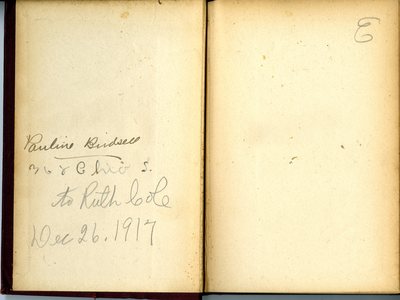 Pauline Birdsell
368 Ohio S.
to Ruth Cole
Dec 26. 1917
E